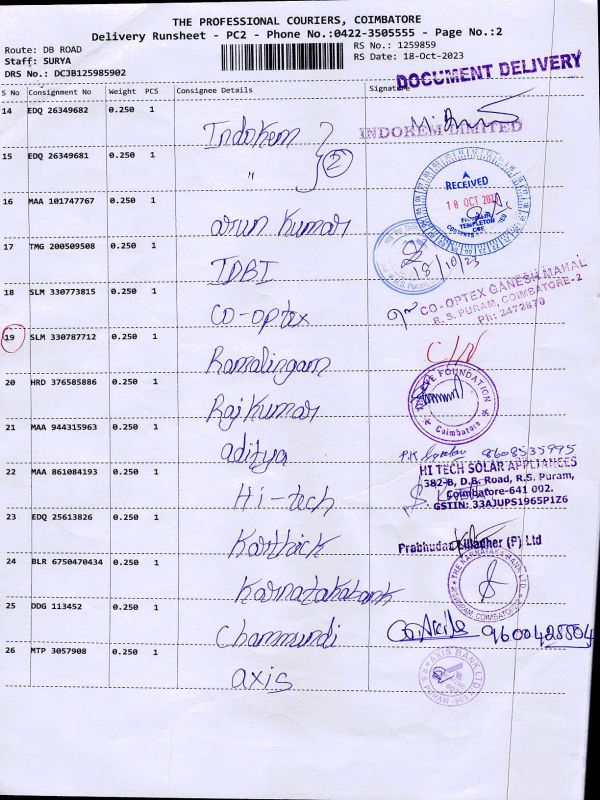 THE PROFESSIONAL COURIERS, COIMBATORE
Delivery Runsheet - PC2 - Phone No.:0422-3505555 - Page No.:2
Route: DB ROAD
RS No.: 1259859
Staff: SURYA
RS Date: 18-Oct-2023
DRS No.: DCJB125985902
DOCUMENT DELIVERY
S No Consignment No Weight PCS Consignee Details Signature
14 EDQ 26349682 0.250 1
Indokem } 2
INDOKEM LIMITED
15 EDQ 26349681 0.250 1
"
RECEIVED
18 OCT 202
TEMPLETON
16 MAA 101747767 0.250 1
arun kumar
17 TMG 200509508 0.250 1
IDBI
R.S. Puram
18/10/23
18 SLM 330773815 0.250 1
CO-optex
CO-OPTEX GANESH MAHAL
R. S. PURAM, COIMBATORE-2
Ph: 2472870
19 SLM 330787712 0.250 1
Ramalingam
C/N
20 HRD 376585886 0.250 1
Raj Kumar
EYE FOUNDATION
Coimbatore
21 MAA 944315963 0.250 1
aditya
P.K 9608535995
22 MAA 861084193 0.250 1
Hi-tech
HI TECH SOLAR APPLIANCES
382-B, D.B. Road, R.S. Puram,
Coimbatore-641 002.
GSTIN: 33AJUPS1965P1Z6
23 EDQ 25613826 0.250 1
Karthick
Prabhudas Lilladher (P) Ltd
24 BLR 6750470434 0.250 1
Karnatakabank
THE KARNATAKA BANK LTD
COIMBATORE
25 DDG 113452 0.250 1
Chammundi
9600425504
26 MTP 3057908 0.250 1
axis
AXIS BANK LTD
R.S. PURAM